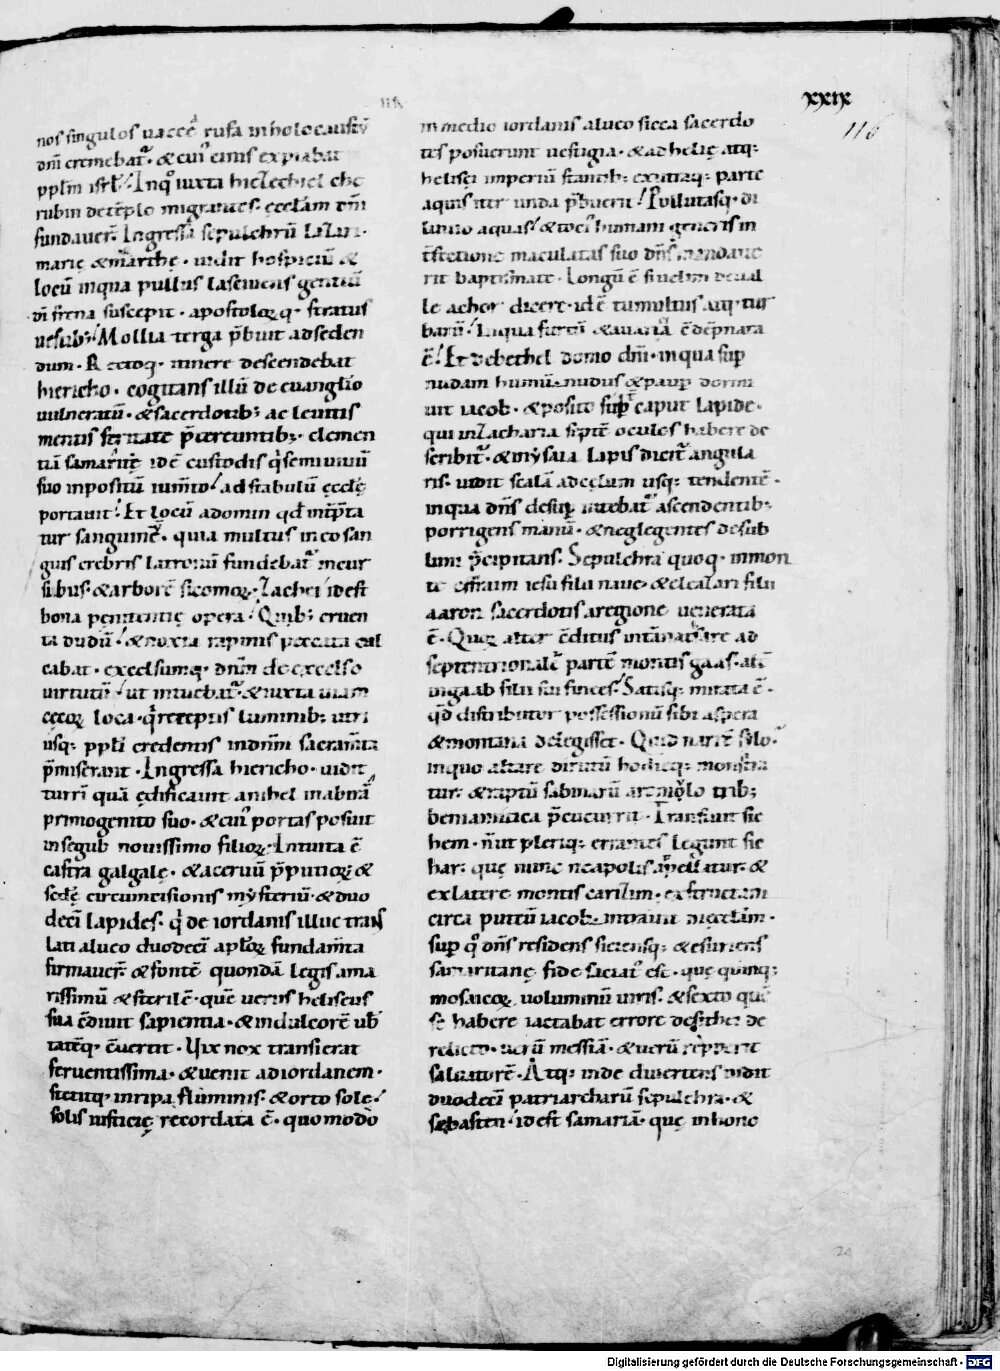 XXIX
116
nos singulos uacce rufa inholocaustū
dñi cremebatᷣ. & cui᾽ cinis expiabat
pplm isrl. Inq̊ iuxta hiezechiel che
rubin detēplo migrantes. ęcclam dñi
fundauer̄. Ingressa sepulchrū lazari.
marię & marthę. uidit hospiciū &
locū inqua pullus lasciuiens gentiū
dī frena suscepit. apostoloꝝ q; stratus
uestib; Mollia terga p̄buit adseden
dum. Rectoq; itinere descendebat
hiericho. cogitans illū de euanglio
uulneratū. & sacerdotib; ac leuitis
mentis feritate p̄tereuntib; clemen
tiā samaritę idē custodis q̇ semiuiuū
suo inpositū iumto ad stabulū ęcclę
portauit. Et locū adomin qd̄ int̄p̄ta
tur sanguinē. quia multus in eo san
guis crebris latronū fundebatᷣ incur
sibus. & arborē sicomoꝝ. zachei idest
bona penitentię opera. Quib; cruen
ta dudū. & noxia rapinis peccata cal
cabat. excelsumq; dnm de excelso
uirtutū. ut intuebatᷣ. & iuxta uiam
cęcoꝝ loca. q̇ receptis luminib; utri
usq; ppli credentis indnm sacramta
p̄miserant. Ingressa hiericho. uidit
turrī quā ędificauit anihel inabirā
primogenito suo. & cui᾽ portas posuit
insegub nouissimo filioꝝ. Intuita ē
castra galgalę. & aceruū p̄putioꝝ &
sedę circumcisionis mysteriū. & duo
decī lapides. q̇ de iordanis illuc trans
lati alueo duodecī aploꝝ fundamta
firmauer̄. & fontē quondā legis ama
rissimū & sterilē. quē uerus heliseus
sua c̄diuit sapientia. & indulcorē ub̄
tatēq; c̄uertit. Vix nox transierat
feruentissima. & uenit adiordanem.
stetitq; inripa fluminis. & orto sole.
solis iusticię recordata ē. quomodo
in medio iordanis alueo sicca sacerdo
tes posuerunt uestigia. & ad helię atq;
helisei imperiū stantib; exutraq; parte
aquis iter unda p̄buerit. Pollutasq; di
luuio aquas. & toti᾽ humani generis in
maculatas suo dñs mundaue
rit baptismate. Longū ē si uelim deual
le achor dicere. idē tumultus atq; tur
barū. Inqua furtū & auaricia ē dēpnata
ē. Et debethel domo dñi. inqua sup
nudam humū nudus & paup dormi
uit iacob. & posito sup̄ caput lapide.
qui inzacharia septē oculos habere de
scribitᷣ. & in ysaia lapis dicitᷣ angula
ris. uidit scalā adcęlum usq; tendentē.
inqua dñs desup̄ nitebatᷣ ascendentib;
porrigens manū. & neglegentes desub
limi p̄cipitans. Sepulchra quoq; inmon
te effraim iesu filii naue. & eleazari filii
aaron sacerdotis aregione uenerata
ē. Quoꝝ alter c̄ditus
septentrionalē partē montis gaas. alt̄
ingaab filii sui finees. Satisq; mirata ē.
qd̄ distributor possessionū sibi aspera
& montana delegisset. Quid narrē sylo.
inquo altare dirutū hodieq; monstra
tur. & raptū sabinarū aromolo trib;
beniaminica p̄cucurrit. Transiuit sic
hem. n̄ut pleriq; errantes legunt sic
har. quę nunc neapolis appellatur. &
exlatere montis garizim. exstructam
circa puteū iacob. intrauit ęcclam.
sup̄ q̊ dñs residens siciensq; & esuriens
samaritanę fide saciat᾽ est. quę quinq;
mosaicoꝝ uoluminū uiris. & sexto quē
se habere iactabat errore desithei de
relicto. uerū messiā. & uerū repperit
saluatorē. Atq; inde diuertens uidit
duodecī patriarcharū sepulchra. &
sebasten. idest samariā. quę inhonc
24
Digitalisierung gefördert durch die Deutsche Forschungsgemeinschaft - DFG